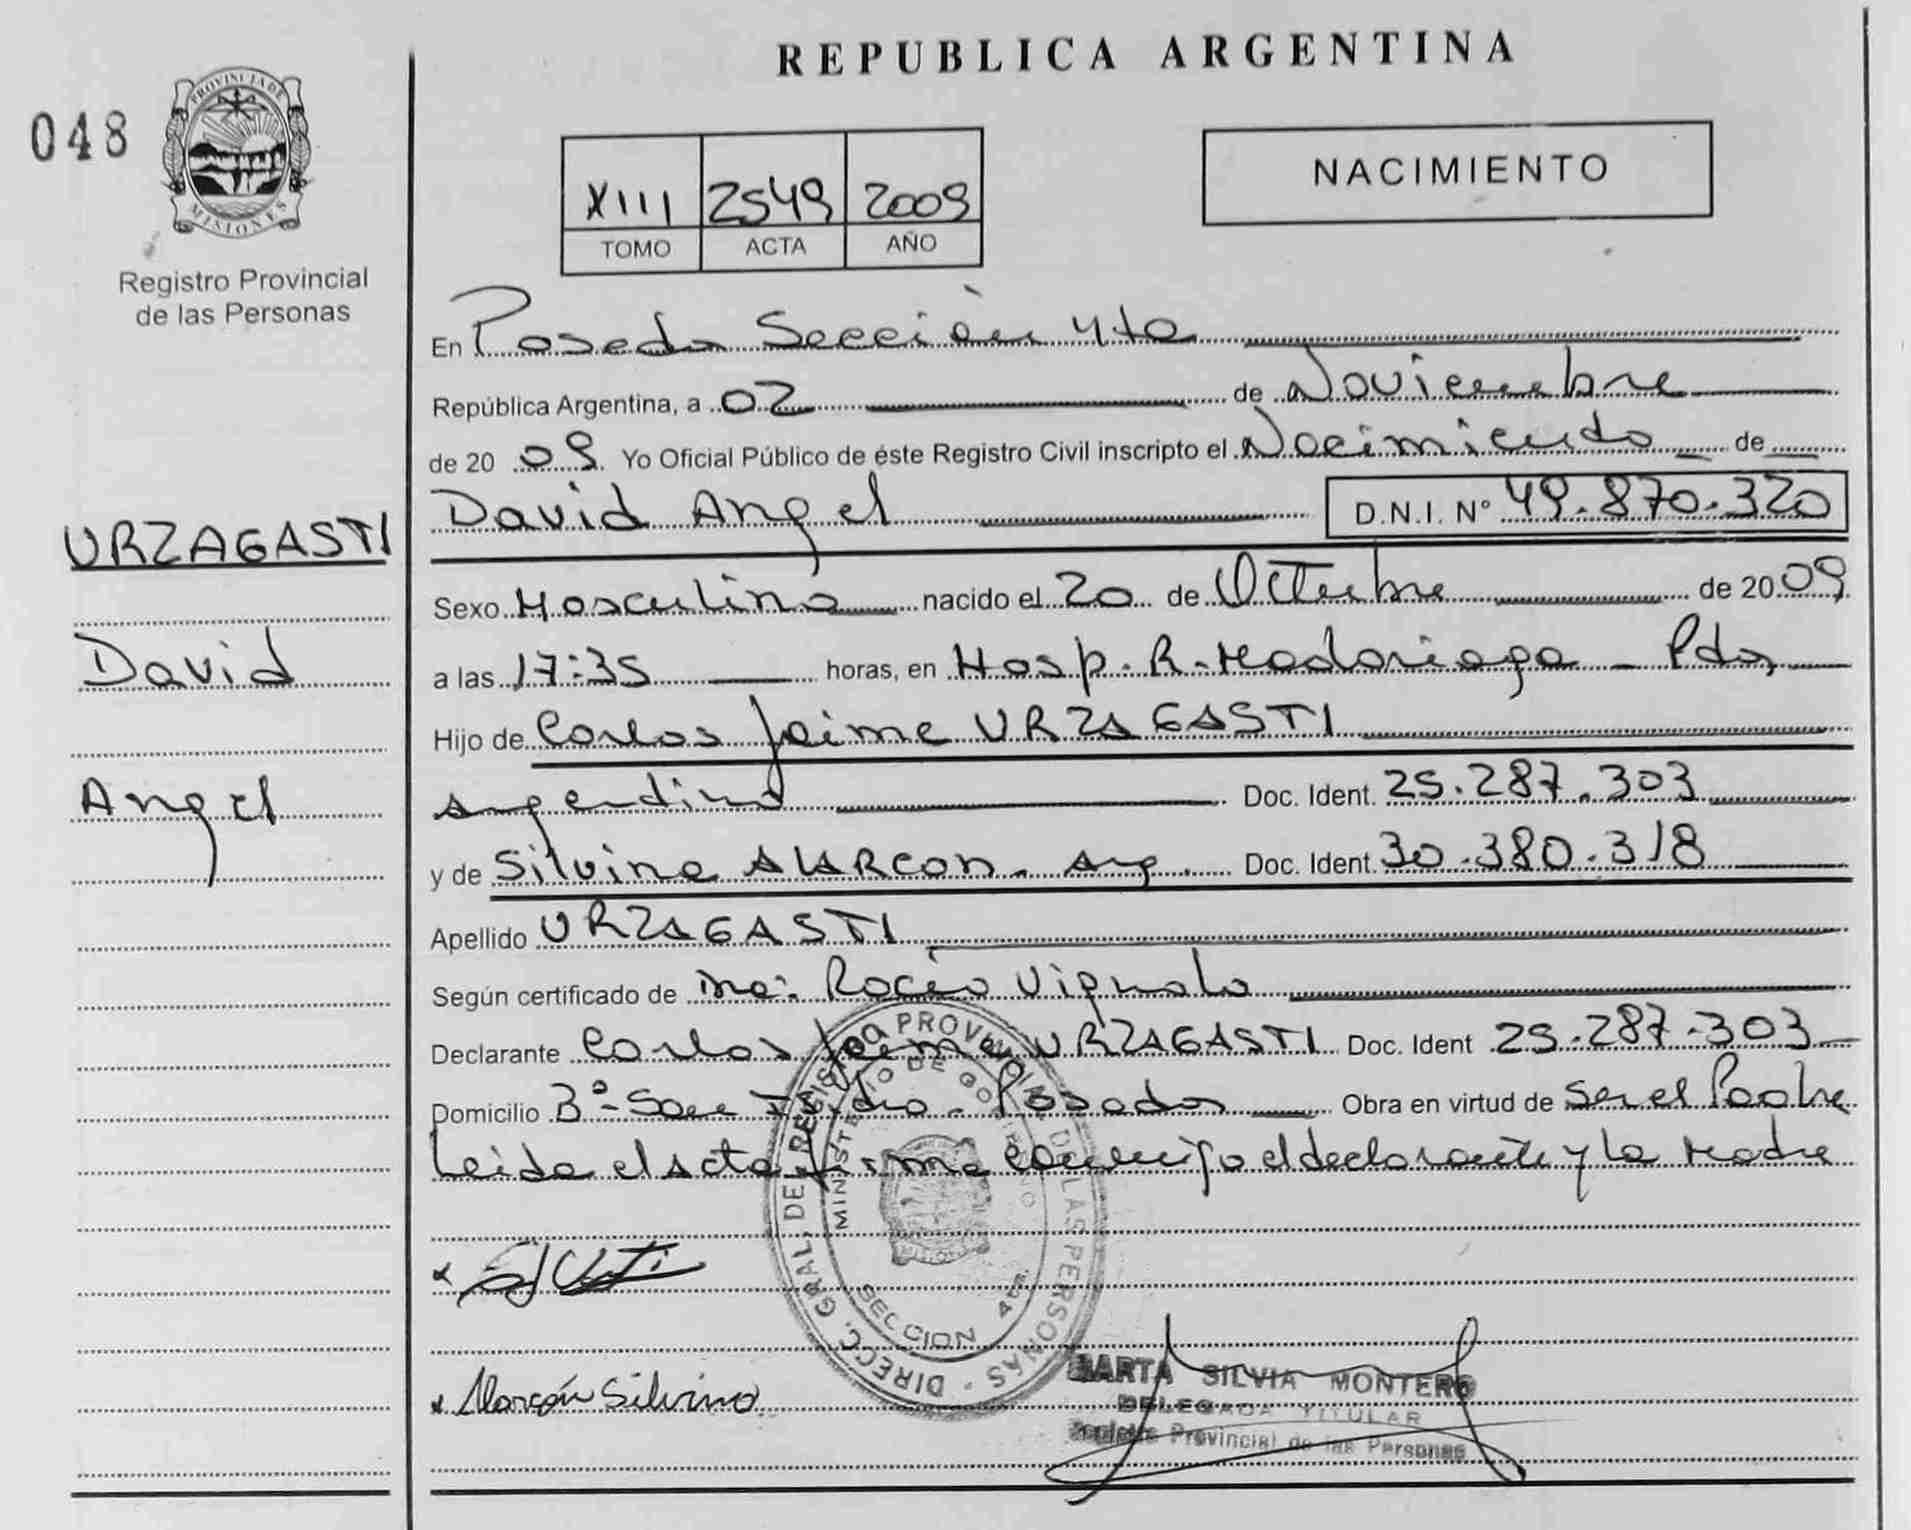 REPUBLICA ARGENTINA
048
PROVINCIA DE
MISIONES
Registro Provincial
de las Personas
NACIMIENTO
XIII 2549 2009
TOMO ACTA AÑO
En Posadas Sección 4ta
República Argentina, a 02 de Noviembre
de 20 09 Yo Oficial Público de éste Registro Civil inscripto el Nacimiento de
David Angel D.N.I. Nº 49.870.320
URZAGASTI
David
Angel
Sexo Masculino nacido el 20 de Octubre de 20 09
a las 17:35 horas, en Hosp. R. Madariaga - Pdas
Hijo de Carlos Jaime URZAGASTI
argentino Doc. Ident. 25.287.303
y de Silvina ALARCON - Arg. Doc. Ident. 30.380.318
Apellido URZAGASTI
Según certificado de Dra: Rocío Vignolo
Declarante Carlos Jaime URZAGASTI Doc. Ident 25.287.303
Domicilio Posadas Obra en virtud de ser el Padre
Leida el acta firma conmigo el declarante y la Madre
DIRECC. GRAL. DEL REGISTRO PROVINCIAL DE LAS PERSONAS
MINISTERIO DE GOBIERNO
SECCION 4ta.
Alarcón Silvina
MARTA SILVIA MONTERO
DELEGADA TITULAR
Registro Provincial de las Personas